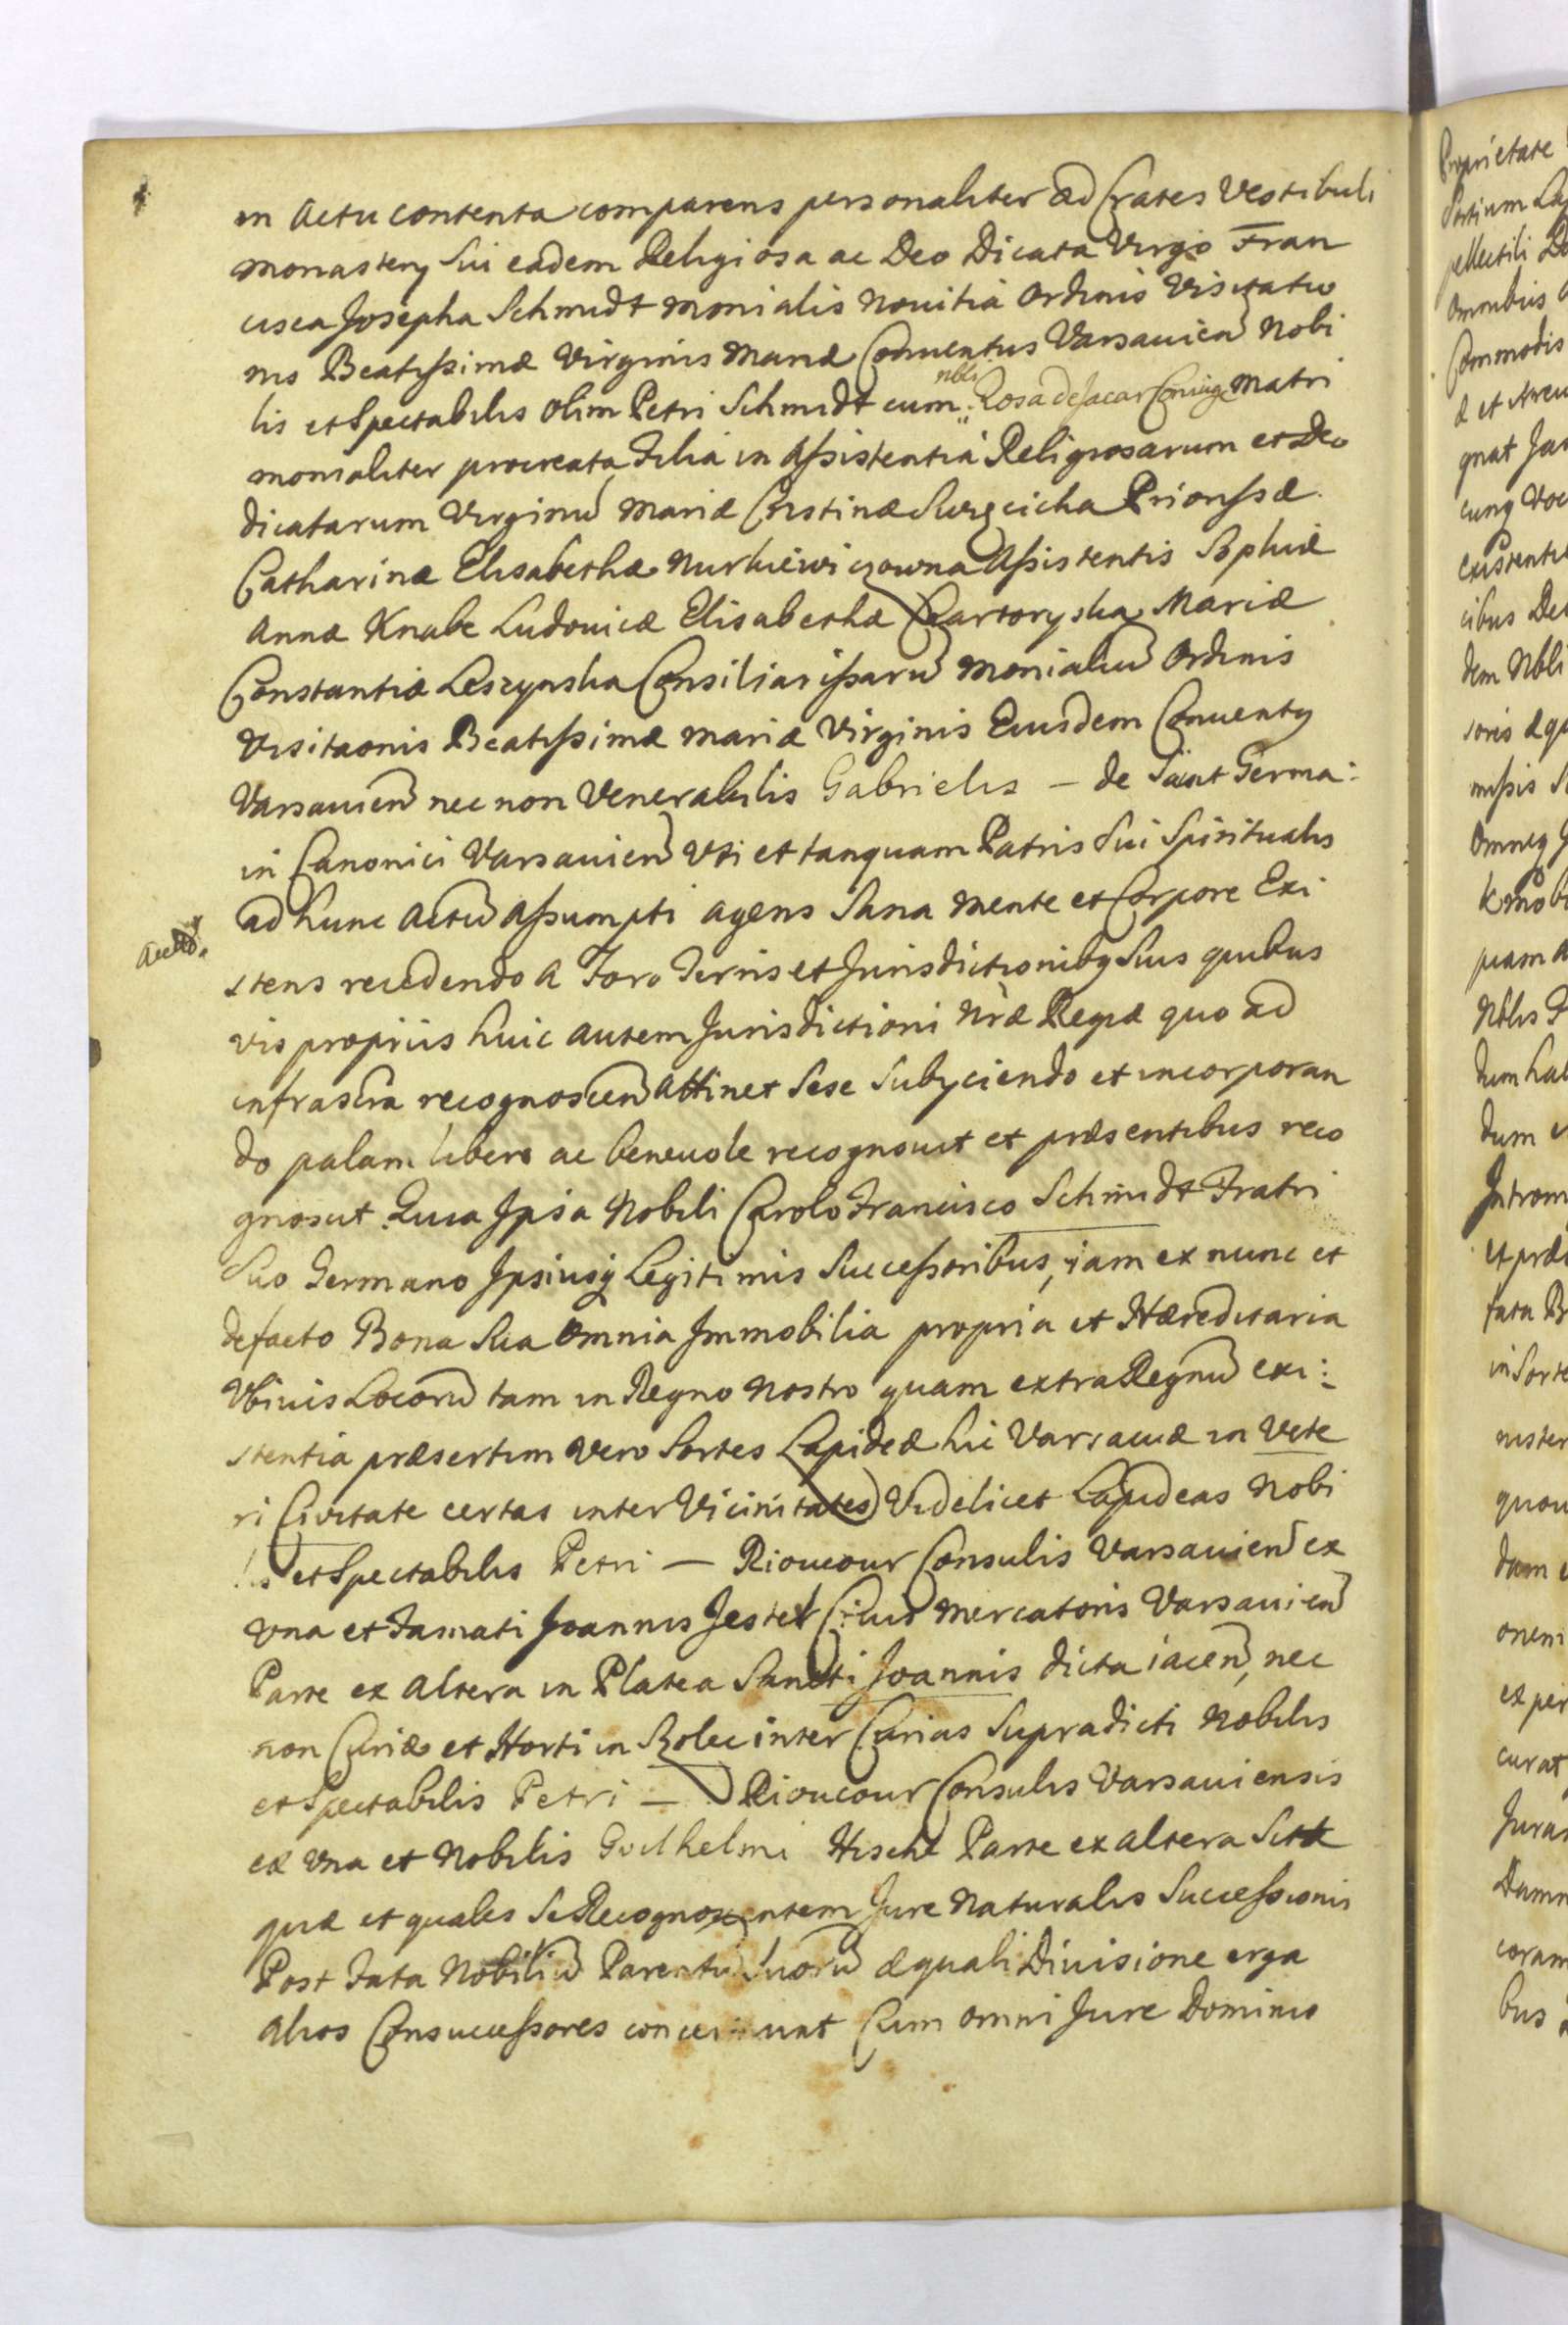 in Actu contenta comparens personaliter ad Crates Vestibuli
monastery Sui eadem Religiosa ac Deo Dicata Virgo Fran
cisca Josepha Schmidt monialis Nouitia Ordinis Visitatio
nis Beatissimæ Virginis Mariæ Conuentus Varsauien Nobi
lis et Spectabilis olim Petri Schmidt cum nbli Rosa de Jacar Coniuge Matri
monialiter procreata Filia in Assistentia Religiosarum et Deo
dicatarum Virginu Mariæ Cristinæ Priorissæ
Catharinæ Elisabethæ Nurkiewiczowna Assistentis Sophiæ
Annæ Knabe Ludouicæ Elisabethæ Czartoryska Mariæ
Constantiæ Leszynska Consiliarissaru Monialiu Ordinis
Visitaonis Beatissimæ Mariæ Virginis Eiusdem Conuentq
Varsauien nec non Venerabilis Gabrielis – de Saint Germa:
in Canonici Varsauien Vti et tanquam Patris Sui Spiritualis
ad hunc Actu Assumpti agens Sana Mente et Corpore Exi
stens recedendo a Foro Terris et Jurisdictionibq Suis quibus
vis propriis huic autem Jurisdictioni Nræ Regiæ quo ad
infrascra recognoscen Attinet Sese Subyciendo et incorporan
do palam libere ac beneuole recognouit et præsentibus reco
gnoscit Quia Ipsa Nobili Carolo Francisco Schmidt Fratri
Suo Germano Ipsiusq Legitimis Successoribus, iam ex nunc et
defacto Bona Sua Omnia Immobilia propria et Hæreditaria
Vbiuis Locoru tam in Regno Nostro quam extra Regnu exi:
stentia præsertim vero Sortes Lapideæ hic Varsauiæ in Vete
ri Ciuitate certas inter Vicinitates Videlicet Lapideas Nobi
lis et Spectabilis Petri – Rioucour Consulis Varsauien ex
Vna et Famati Joannis Mercatoris Varsauien
Parte ex altera in Platea Sancti Joannis dicta iacen, nec
non Curiæ et Horti in Solec inter Curias Supradicti Nobilis
et Spectabilis Petri – Rioucour Consulis Varsauiensis
ex Vna et Nobilis Guilhelmi Parte ex altera Sitæ
quæ et quales Se Recognoscentem Jure Naturalis Successionis
Post Fata Nobiliu Parentu Suoru æquali Diuisione erga
alios Consuccessores concernunt Cum omni Jure Dominio